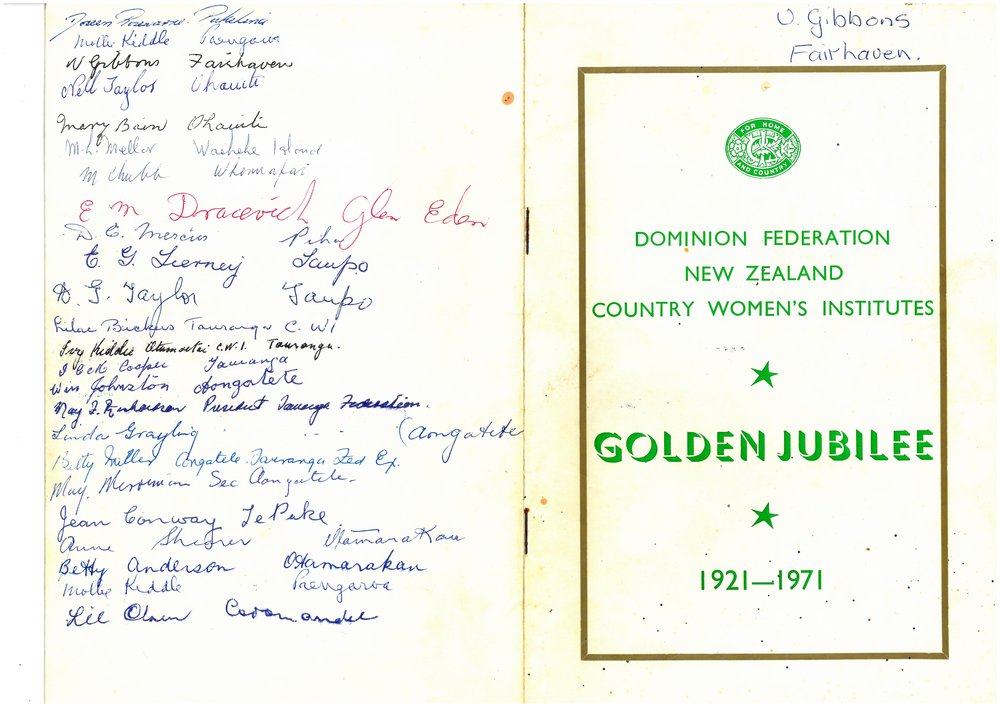 Doreen
Mollie Kiddle Paengaroa
V Gibbons Fairhaven
Nell Taylor Ohauiti
Mary Bain Ohauiti
M. L. Mellor Waeheke Island
M Chubb
E M Dracevich Glen Eden
D. E. Piha
E. G. Tierney Taupo
A. G. Taylor Taupo
Tauranga C. W I
Ivy Kiddie Otumoetai C.W.I. Tauranga.
Cooper Tauranga
Win Johnston Aongatete
May President Tauranga Federation.
Linda Grayling (Aongatete
Betty Miller Aongatete. Tauranga Fed Ex.
May. Merriman Sec Aongatete.
Jean Conway Te Puke
Anne Shearer Otamarakau
Betty Anderson Otamarakau
Mollie Kiddle Paengaroa
Coromandel
V. Gibbons
Fairhaven.
FOR HOME
AND COUNTRY
DOMINION FEDERATION
NEW ZEALAND
COUNTRY WOMEN'S INSTITUTES
GOLDEN JUBILEE
1921—1971